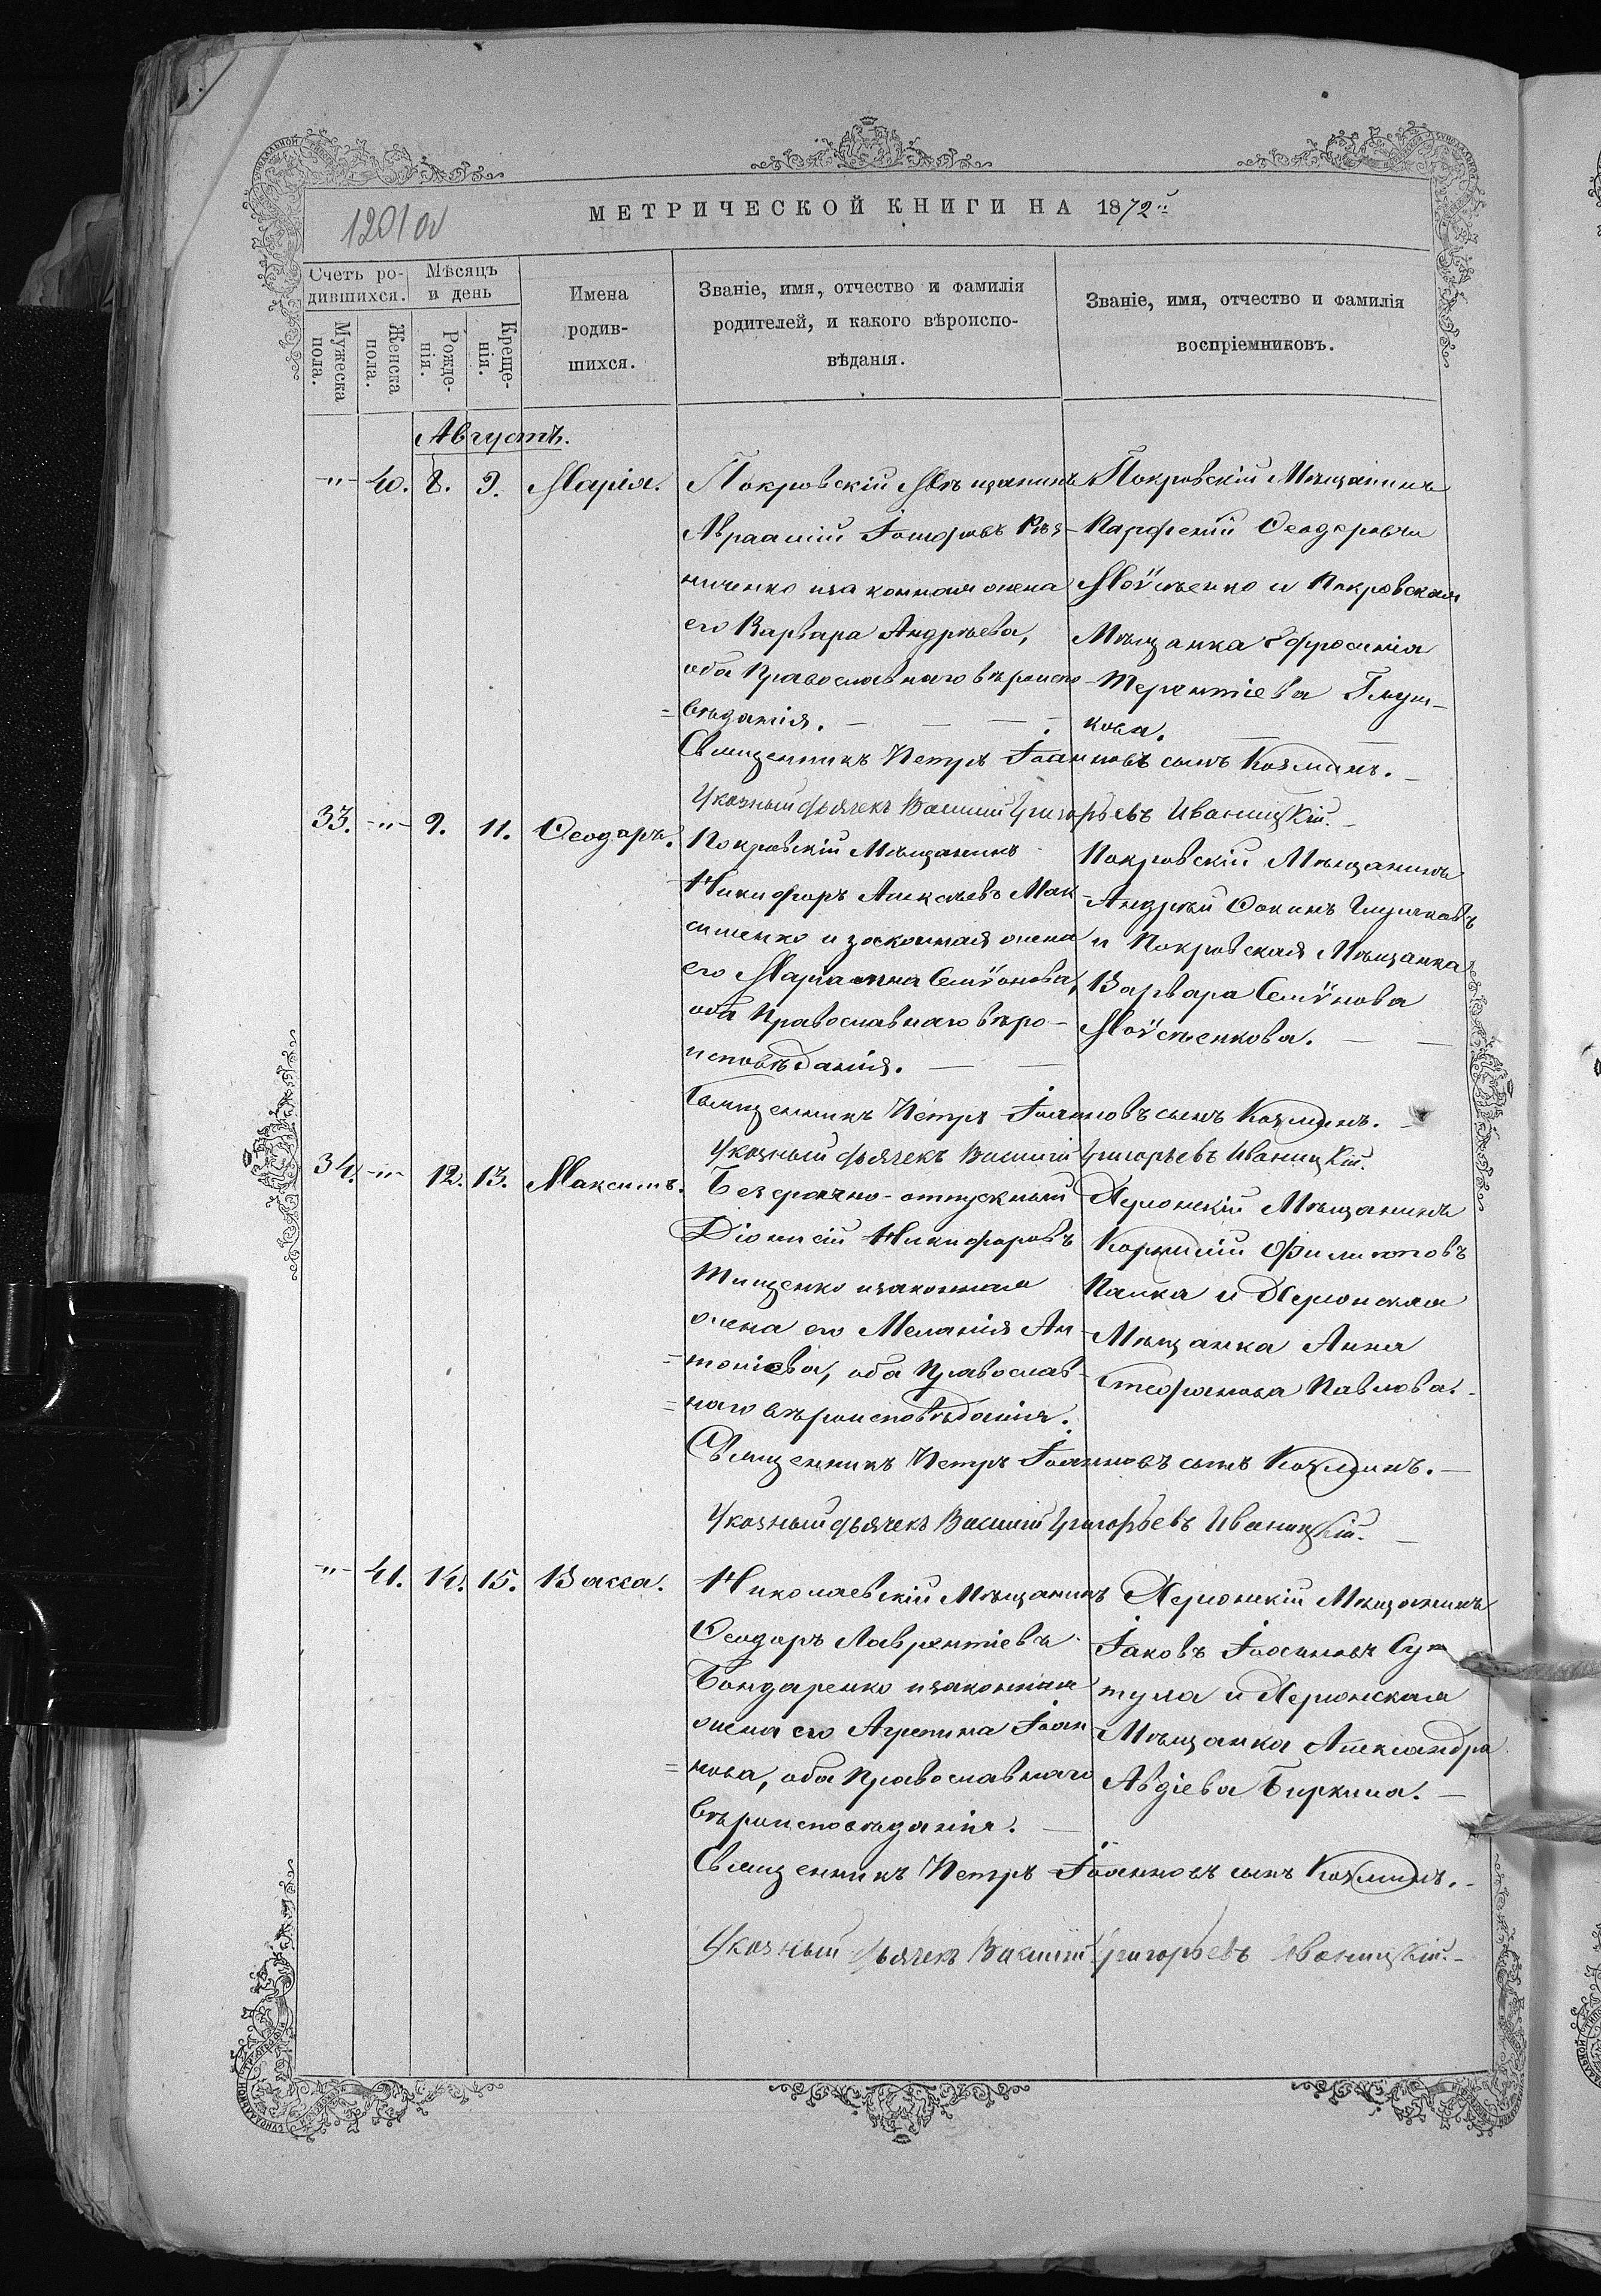 МЕТРИЧЕСКОЙ КНИГИ НА 1872й
1201 об
Счетъ родившихся.
Мѣсяцъ и день
Мужеска пола.
Женска пола.
Рожденія.
Крещенія.
Имена родившихся.
Званіе, имя, отчество и фамилія родителей, и какого вѣроисповѣданія.
Званіе, имя, отчество и фамилія воспріемниковъ.
Августъ.
-"- 40. 8. 9. Марія.
Покровскій Мѣщанинъ
Авраамій Іосифовъ
ниченко и законная жена
его Варвара Андрѣева,
оба Православнаго вѣроиспо
=вѣданія.
Покровскій Мѣщанинъ
Парфеній Ѳеодоровъ
Моѵсѣенко и Покровская
Мѣщанка Ефросинія
Терентіева Глуш-
кова.
Священникъ Петръ Іоанновъ сынъ Козминъ.
Указный дьячекъ Василій Григорьевъ Иваницкій.
33. -"- 9. 11. Ѳеодоръ.
Покровскій Мѣщанинъ
Никифоръ Алексѣевъ Мак-
сименко и законная жена
его Маріанна Семѵонова,
оба Православнаго вѣро-
исповѣданія.
Покровскій Мѣщанинъ
Андрей Ѳокинъ Глушковъ
и Покровская Мѣщанка
Варвара Семѵнова
Моѵсѣенкова.
Священникъ Петръ Іоанновъ сынъ Козминъ.
Указный дьячекъ Василій Григорьевъ Иваницкій.
34. -"- 12. 13. Максимъ.
Безсрочно-отпускный
Діонисій Никифоровъ
Тищенко и законная
жена его Меланія Ан-
=тоніева, оба Православ-
=наго вѣроисповѣданія.
Херсонскій Мѣщанинъ
Корнилій Филипповъ
Папка и Херсонская
Мѣщанка Анна
Стефанова Павлова.
Священникъ Петръ Іоанновъ сынъ Козминъ.
Указный дьячекъ Василій Григорьевъ Иваницкій.
-"- 41. 14. 15. Васса.
Николаевскій Мѣщанинъ
Ѳеодоръ Лаврентіевъ
Бондаренко и законная
жена его Агрепина Іоан
=нова, оба Православнаго
вѣроисповѣданія.
Херсонскій Мѣщанинъ
Іаковъ Іоанновъ Су-
тула и Херсонская
Мѣщанка Александра
Авдіева Биркина.
Священникъ Петръ Іоанновъ сынъ Козминъ.
Указный дьячекъ Василій Григорьевъ Иваницкій.